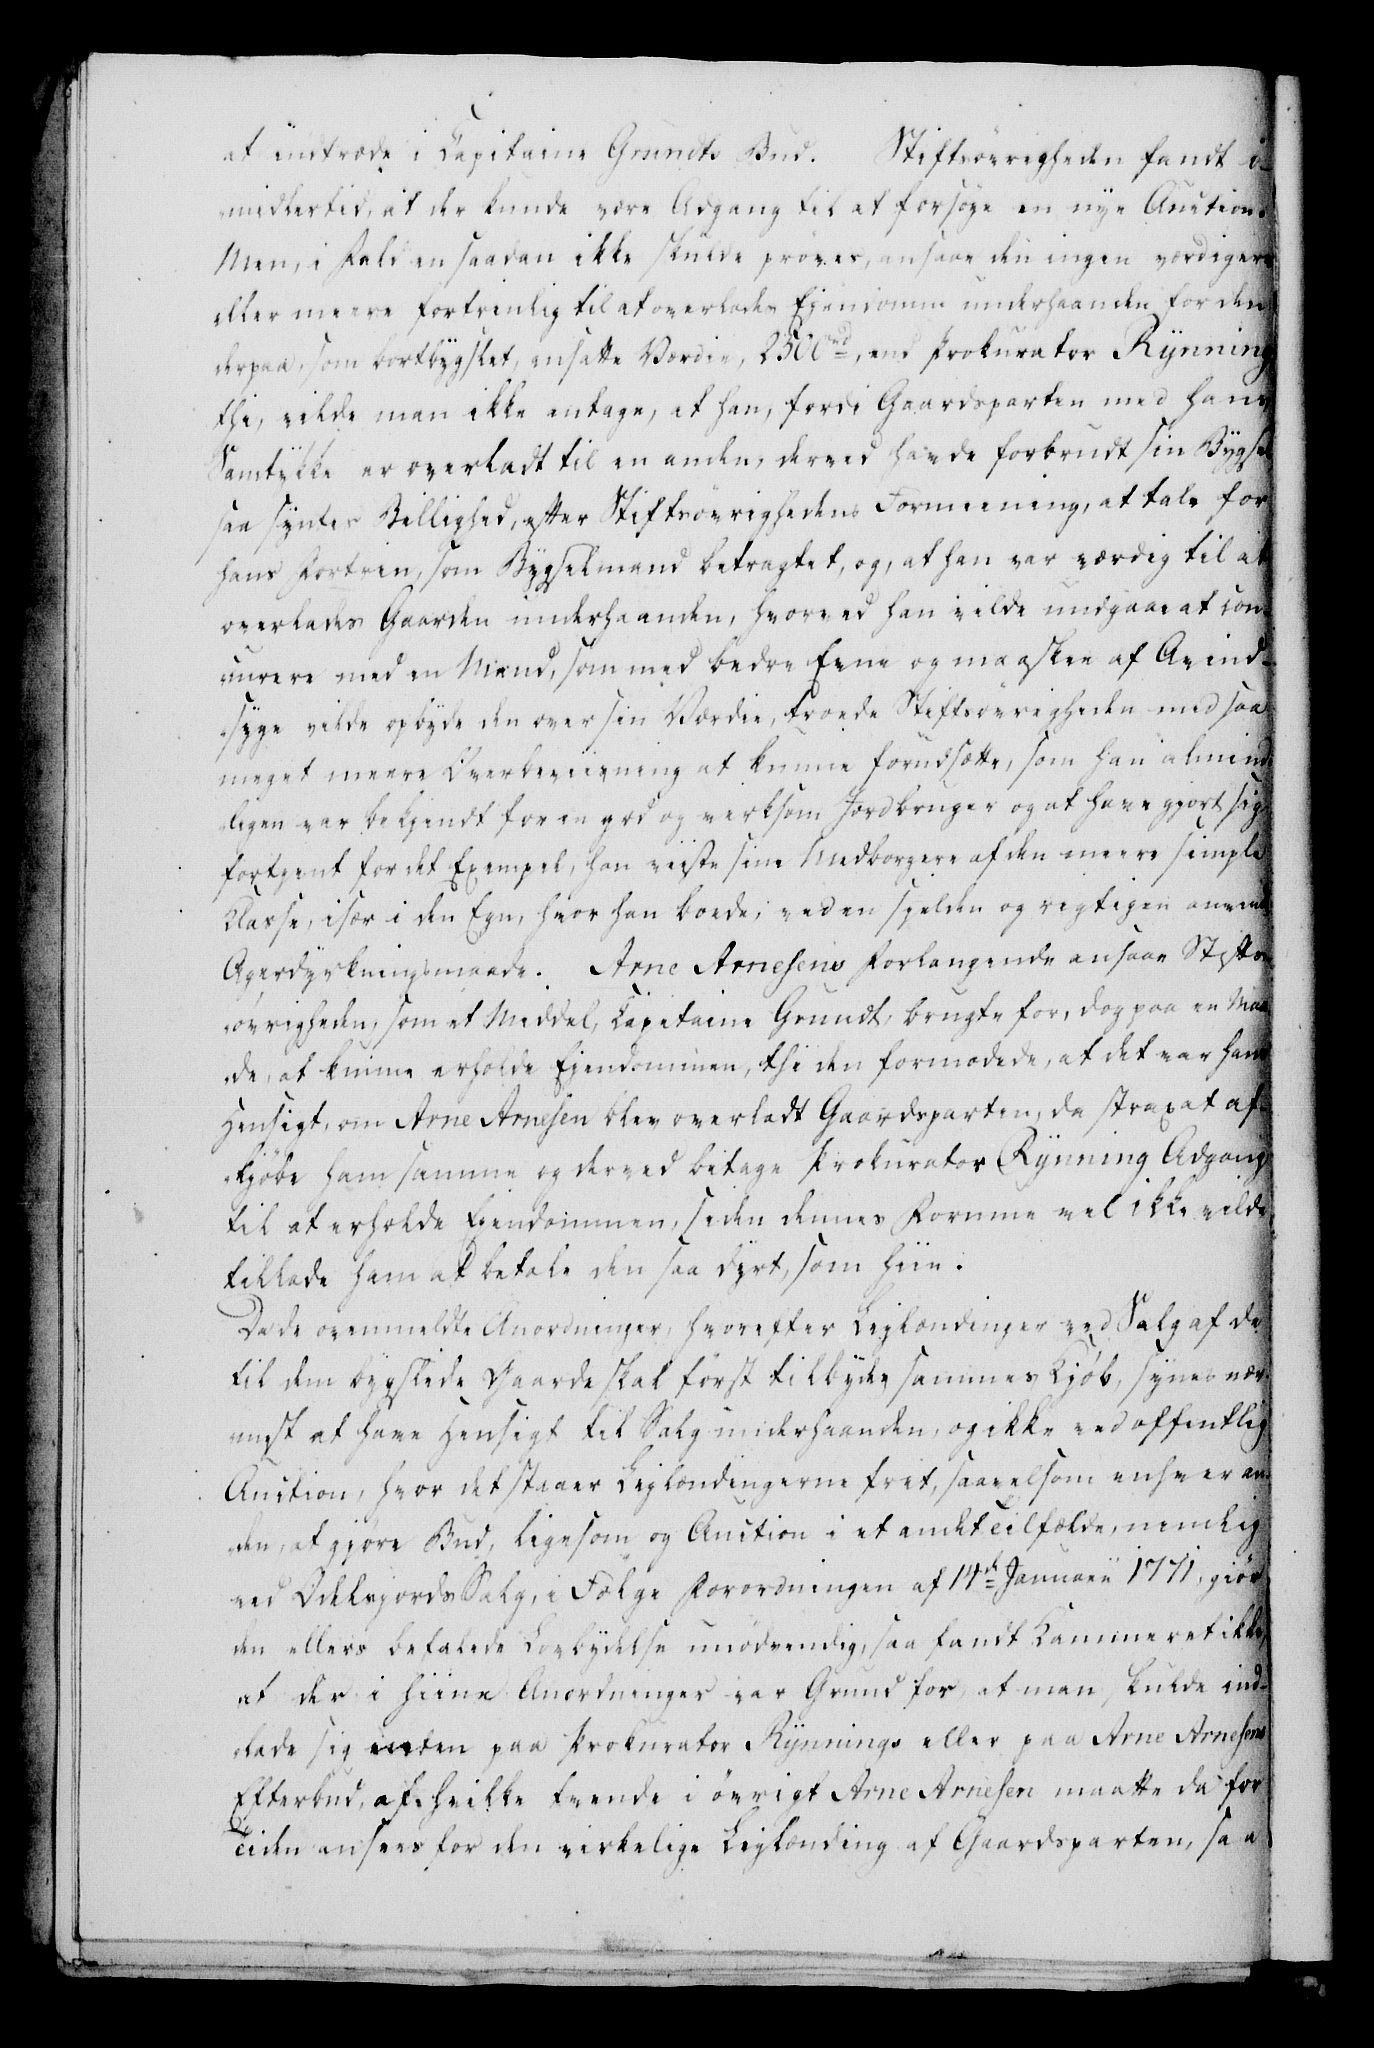 at indtræde i Capitaine Grundts Bud. Stiftsøvrigheden fandt i-
midlertid, at der kunde være Adgang til at forsøge en nye Auction.
Men, i Fald en saadan ikke skulde prøves, ansaae den ingen værdigere
eller meere fortrinlig til at overlades Ejendommen underhaanden for den
derpaa, som bortbygslet, ansatte Værdie, 2500 rd, end Prokurator Rynning
thi, vilde man ikke antage, at han, fordi Gaardsparten med hans
Samtykke er overladt til en anden, derved havde forbrudt sin Bygsel
saa syntes Billighed, efter Stiftsøvrighedens Formeening, at tale for
hans Fortrin, som Bygselmand betragtet, og, at han var værdig til at
overlades Gaarden underhaanden, hvorved han vilde undgaae at con-
currere med en Mand, som med bedre Evne og maaskee af Avind-
syge vilde opbyde den over sin Værdie, troede Stiftsøvrigheden med saa
meget meere Overbeviisning at kunne forudsætte, som han almind-
ligen var bekjendt for en god og virksom Jordbruger og at have gjort sig
fortjent for det Exempel, han viiste sine Medborgere af den meere simple
Classe, især i den Egn, hvor han boede, ved en sjelden og rigtigen anvendt
Agerdyrkningsmaade. Arne Arnesens Forlangende ansaae Stifts-
øvrigheden, som et Middel, Capitaine Grundt, brugte for, dog paa en Maa-
de, at kunne erholde Ejendommen, thi den formodede, at det var hans
Hensigt, om Arne Arnesen blev overladt Gaardsparten, da strax at af-
kjøbe ham samme og derved betage Prokurator Rynning Adgang
til at erholde Ejendommen, siden dennes Formue vel ikke vilde
tillade ham at betale den saa dyrt, som hiin.
Da de ovenmeldte Anordninger, hvorefter Leylændinger ved Salg af de
til dem bygslede Gaarde skal først tilbydes sammes Kjøb, synes nær-
mest at have Hensigt til Salg underhaanden, og ikke ved offentlig
Auction, hvor det staaer Leylændingerne frit, saavelsom enhver an-
den, at gjøre Bud, ligesom og Auction i et andet Tilfælde, nemlig
ved Odelsjords Salg, i Følge Forordningen af 14de Januarii 1771, giør
den ellers befalede Lovbydelse unødvendig, saa fandt Kammeret ikke,
at der i hiine Anordninger var Grund for, at man kulde ind-
lade sig enten paa Prokurator Rynnings eller paa Arne Arnesens
Efterbud, af hvilke tvende i øvrigt Arne Arnesen maatte da for
Tiden ansees for den virkelige Leylænding af Gaardsparten, saa